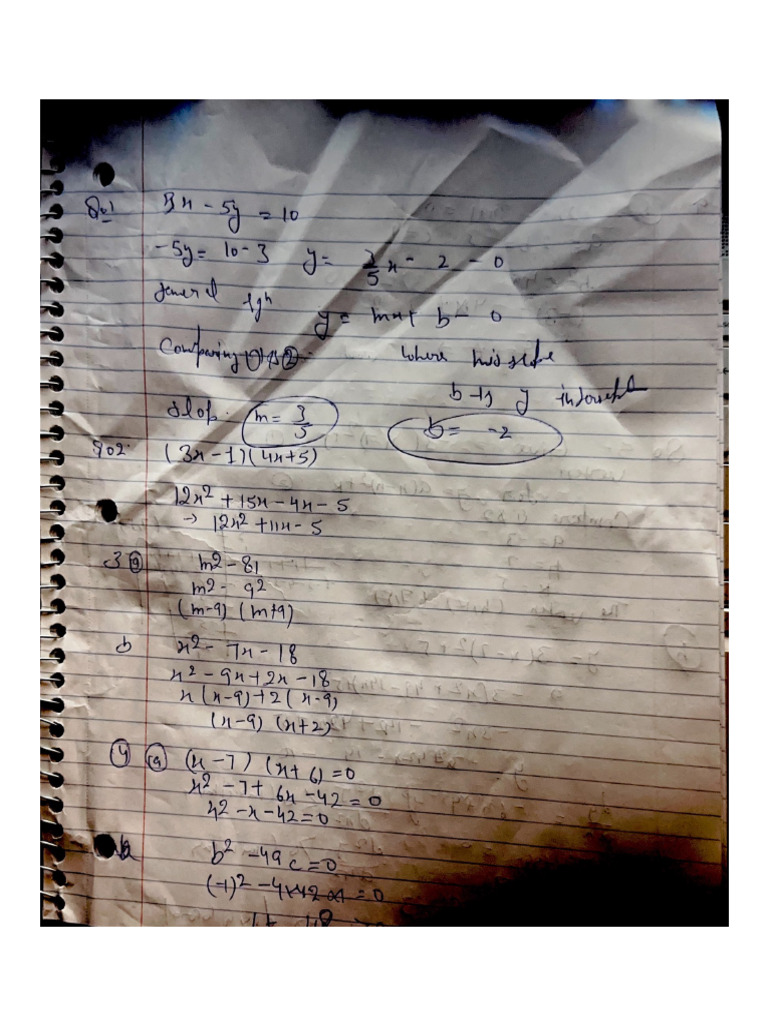 Q.1 3x - 5y = 10
-5y = 10-3 y = 3/5 x - 2 - 0
general
y = mx + b - 0
Comparing 1 & 2 where m is slope
b is y
slop. m = 3/5 b = -2
Q02. (3x-1)(4x+5)
12x² + 15x - 4x - 5
→ 12x² + 11x - 5
3 a m² - 81
m² - 9²
(m-9) (m+9)
b x² - 7x - 18
x² - 9x + 2x - 18
x(x-9)+2(x-9)
(x-9) (x+2)
4 a (x-7) (x+6)=0
x² - 7+ 6x - 42 = 0
x² - x - 42 = 0
b b² - 4ac = 0
(-1)² - 4×42×1 = 0